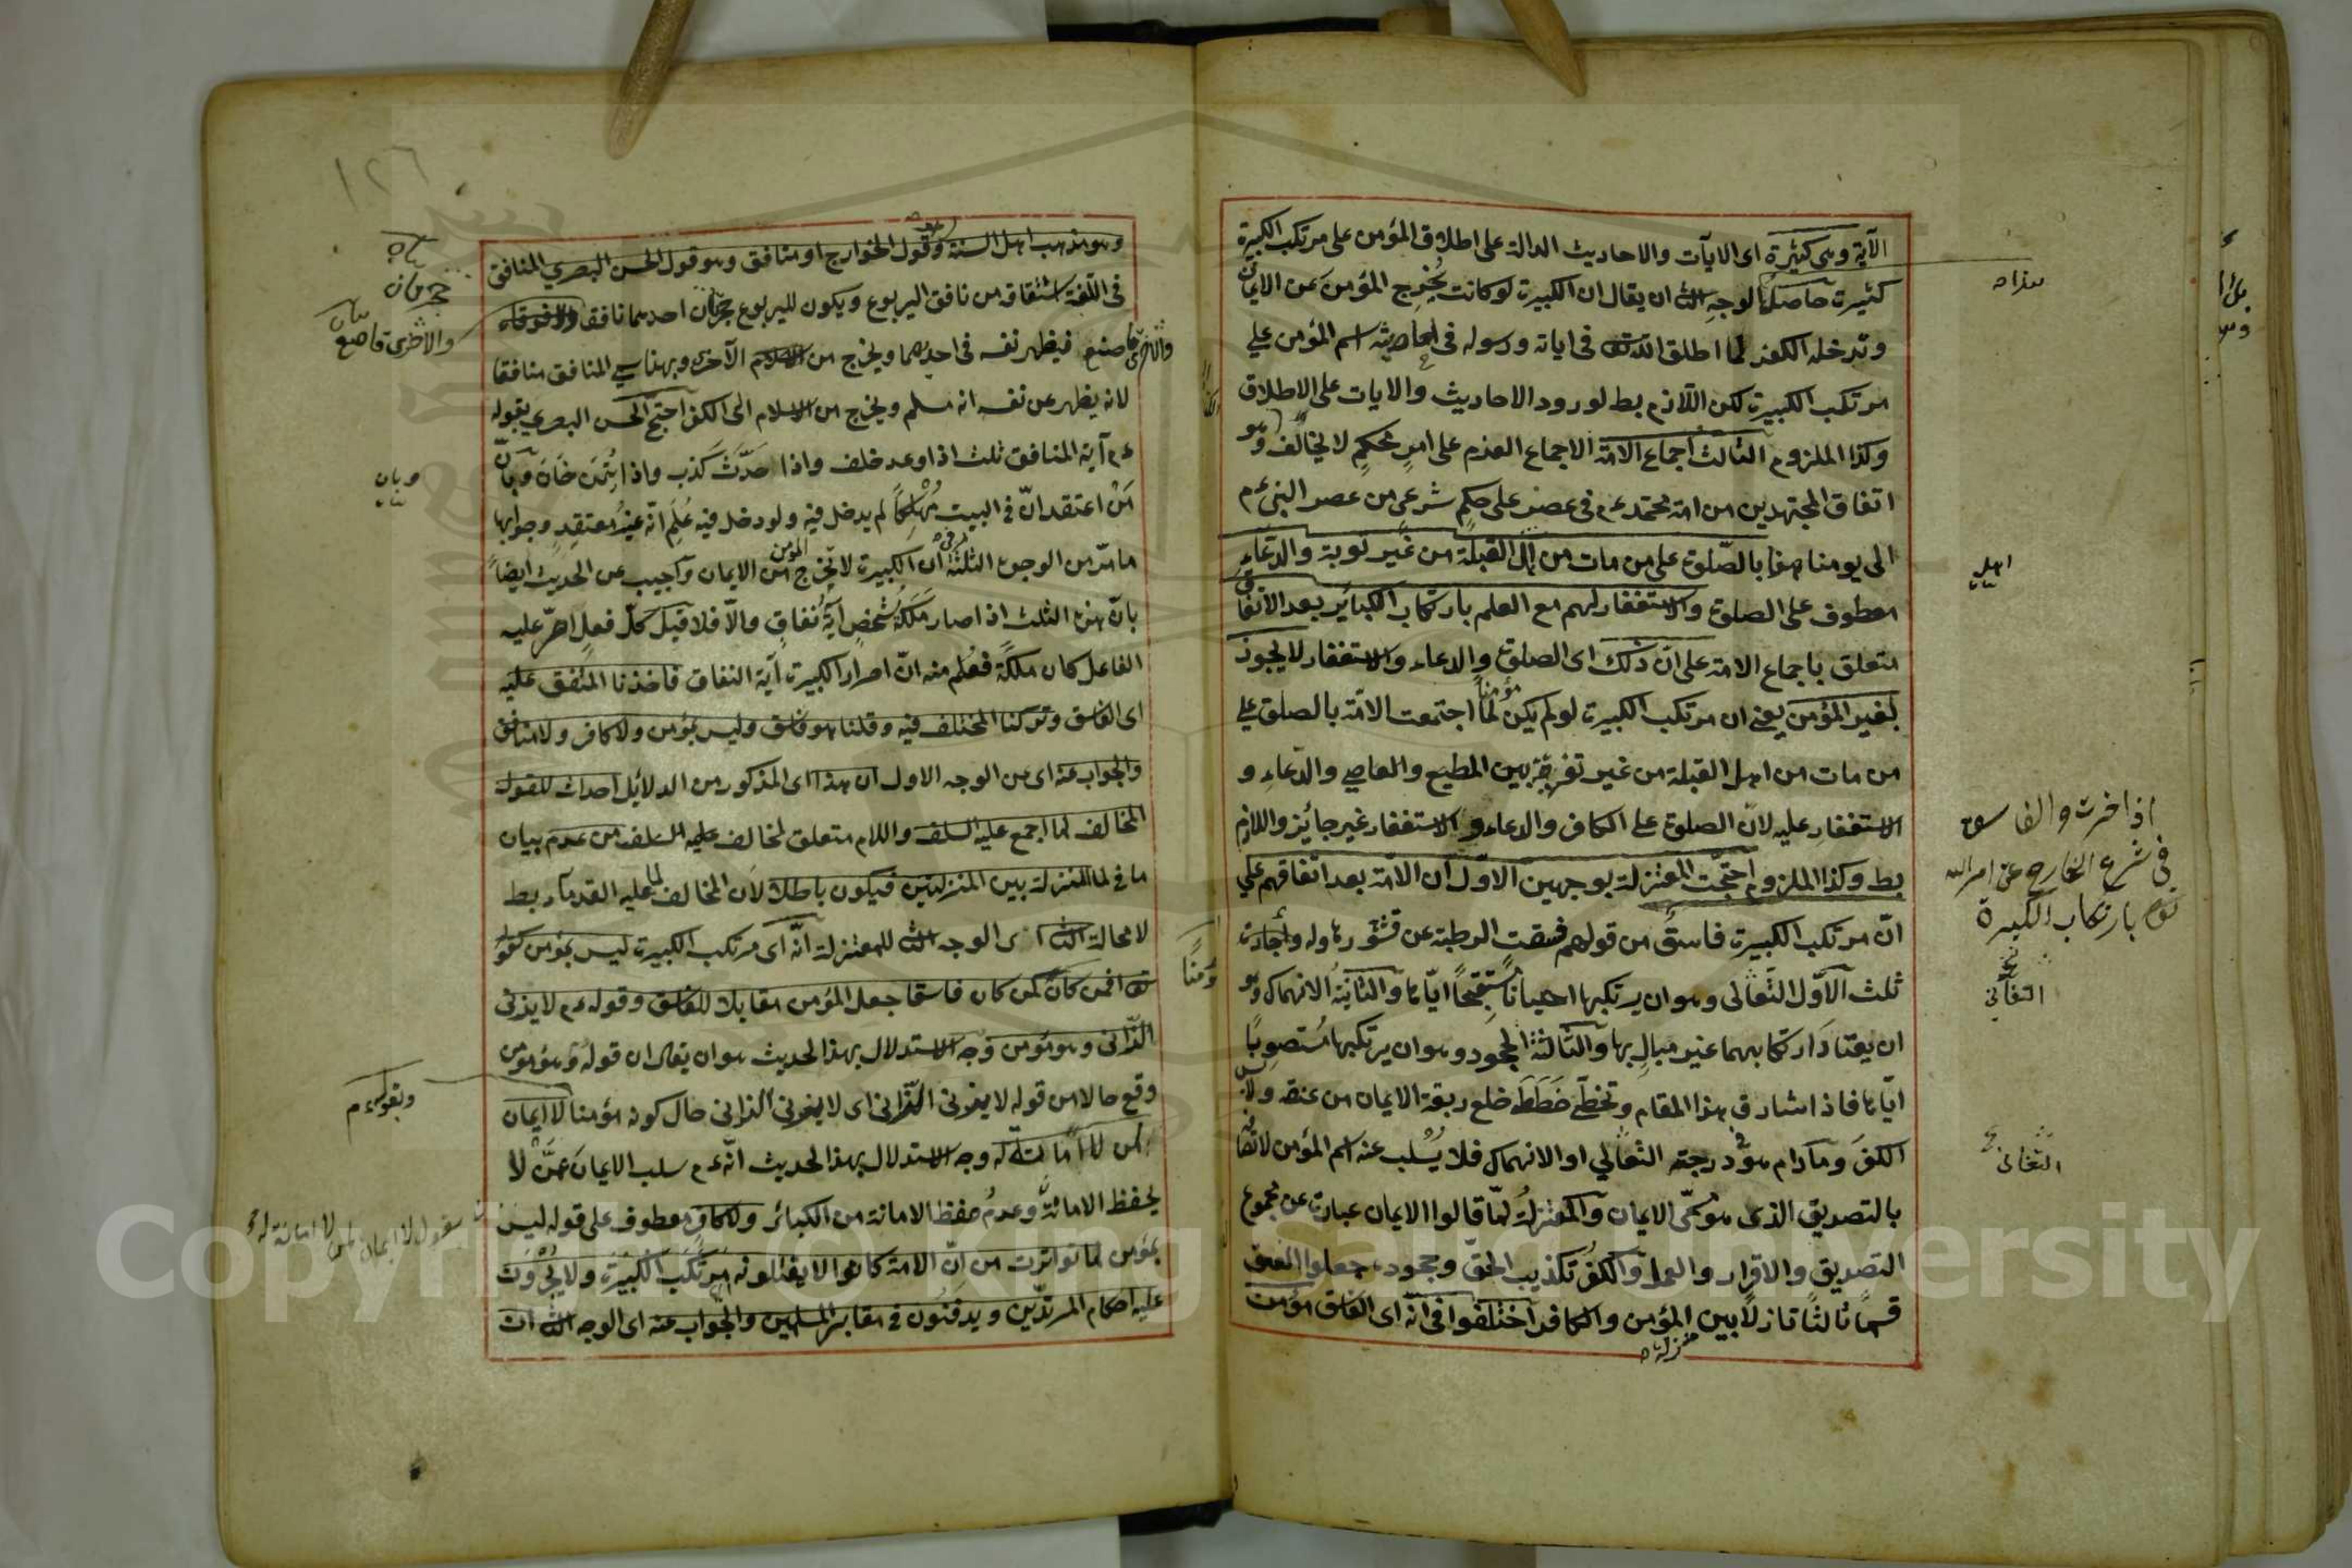 الآية وهى كثيرة اى الايآت والاحاديث الدالة على اطلاق المؤمن على مرتكب الكبيرة
كثيرة حاصل الوجه الثا ان يقال ان الكبيرة لو كانت تُخرِج المؤمن عن الايمان
وتدخله الكفر لما اطلق الله تع فى اياته ورسوله فى احاديثه اسم المؤمن على
مرتكب الكبيرة لكن اللازم بط لورود الاحاديث والايات على الاطلاق
وكذا الملزوم الثالث اجماع الامة الاجماع العزم على امرٍ محكمٍ لا يخالف وهو
اتفاق المجتهدين من امة محمد عم فى عصر على حكم شرعى من عصر النبى عم
الى يومنا هذا بالصلوة على من مات من اهل القبلة من غير توبة والدعاء
معطوف على الصلوة والاستغفار لهم مع العلم بارتكاب الكبائر بعد الاتفاق
متعلق باجماع الامة على ان ذلك اى الصلوة والدعاء والاستغفار لا يجوز
لغير المؤمن يعنى ان مرتكب الكبيرة لو لم يكن مؤمنا لما اجتمعت الامة بالصلوة على
من مات من اهل القبلة من غير تفرقة بين المطيع والعاصى والدعاء و
الاستغفار عليه لان الصلوة على الكافر والدعاء والاستغفار غير جائز واللازم
بط وكذا الملزوم احتجت المعتزلة بوجهين الاول ان الامة بعد اتفاقهم على
ان مرتكب الكبيرة فاسق من قولهم فسقت الرطبة عن قشور
ثلث الاول التغابى وهو ان يرتكبها احيانا مستقبحا اياها والثانية الانهماك وهو
ان يعتاد ارتكابهما غير مبالٍ بها والثالثة الجحود وهو ان يرتكبها مستصوبا
اياها فاذا شارف هذا المقام وتخطى خططه خلع ربقة الايمان من عنقه ولابس
الكفر وما دام هو فى درجة التغابى او الانهماك فلا يُسلب عنه اسم المؤمن لاتصافه
بالتصديق الذى هو مسمّى الايمان والمعتزلة لما قالوا الايمان عبارة عن مجموع
التصديق والاقرار والعمل والكفر تكذيب الحق وجحوده جعلوا الفسق
قسما ثالثا نازلا بين المؤمن والكافر اختلفوا فى انه اى الفاسق مؤمن
منزلة
هذا
اهل
اذا خرت والفاسق
فى شرع الخارج عن امر الله
بارتكاب الكبيرة
التغابى
التغابى
١٢٦
وهو مذهب اهل السنة وقول الخوارج او منافق وهو قول الحسن البصرى المنافق
فى اللغة اشتقاق من نافق اليربوع ويكون لليربوع جحران احدهما نافقا
فيظهر نفسه فى احديهما ويخرج من الآخر وبهذا سمى المنافق منافقا
لانه يظهر عن نفسه انه مسلم ويخرج من الاسلام الى الكفر احتج الحسن البصرى بقوله
عم آية المنافق ثلث اذا وعد خلف واذا حدّث كذب واذا ائتمن خان وبأن
من اعتقد انّ فى البيت مُهلكًا لم يدخل فيه ولو دخل فيه عُلم انه غير معتقد وجوابها
ما مرّ من الوجوه الثلثة ان الكبيرة لا تخرج المؤمن من الايمان واجيب عن الحديث ايضا
بان هذه الثلث اذا صار ملكة شخص آية نفاق والا فلا قيل كل فعل اصرّ عليه
الفاعل كان ملكة فعُلم منه ان اصرار الكبيرة آية النفاق فاخذنا المتفق عليه
اى الفاسق وتركنا المختلف فيه وقلنا هو فاسق وليس بمؤمن ولا كافر ولا منافق
والجواب عنه اى عن الوجه الاول ان هذا اى المذكور من الدلائل احداث للقول
المخالف لما اجمع عليه السلف واللام متعلق لمخالف عليه السلف من عدم بيان
ما فى لما المنزلة بين المنزلتين فيكون باطلا لان المخالف لما عليه القدماء بط
لا محالة الثا اى الوجه الثا للمعتزلة انه اى مرتكب الكبيرة ليس بمؤمن لقوله
تع افمن كان كمن كان فاسقا جعل المؤمن مقابلا للفاسق وقوله عم لا يزنى
الزانى وهو مؤمن وجه الاستدلال بهذا الحديث هو ان يقال ان قوله وهو مؤمن
وقع حالا من قوله لا يزنى الزانى اى لا يزنى الزانى حال كونه مؤمنا لا ايمان
لمن لا امانة له وجه الاستدلال بهذا الحديث انه عم سلب الايمان عمّن لا
يحفظ الامانة وعدم حفظ الامانة من الكبائر ولا كافر معطوف على قوله ليس
بمؤمن لما تواترت من ان الامة كانوا لا يقتلونه مرتكب الكبيرة ولا يجرون
عليه احكام المرتدين ويدفنون فى مقابر المسلمين والجواب عنه اى الوجه الثا ان
جحران
والاخرى قاصع
وبان
وبقوله عم
بقوله لا ايمان لمن لا امانة له
Copyright © King Saud University